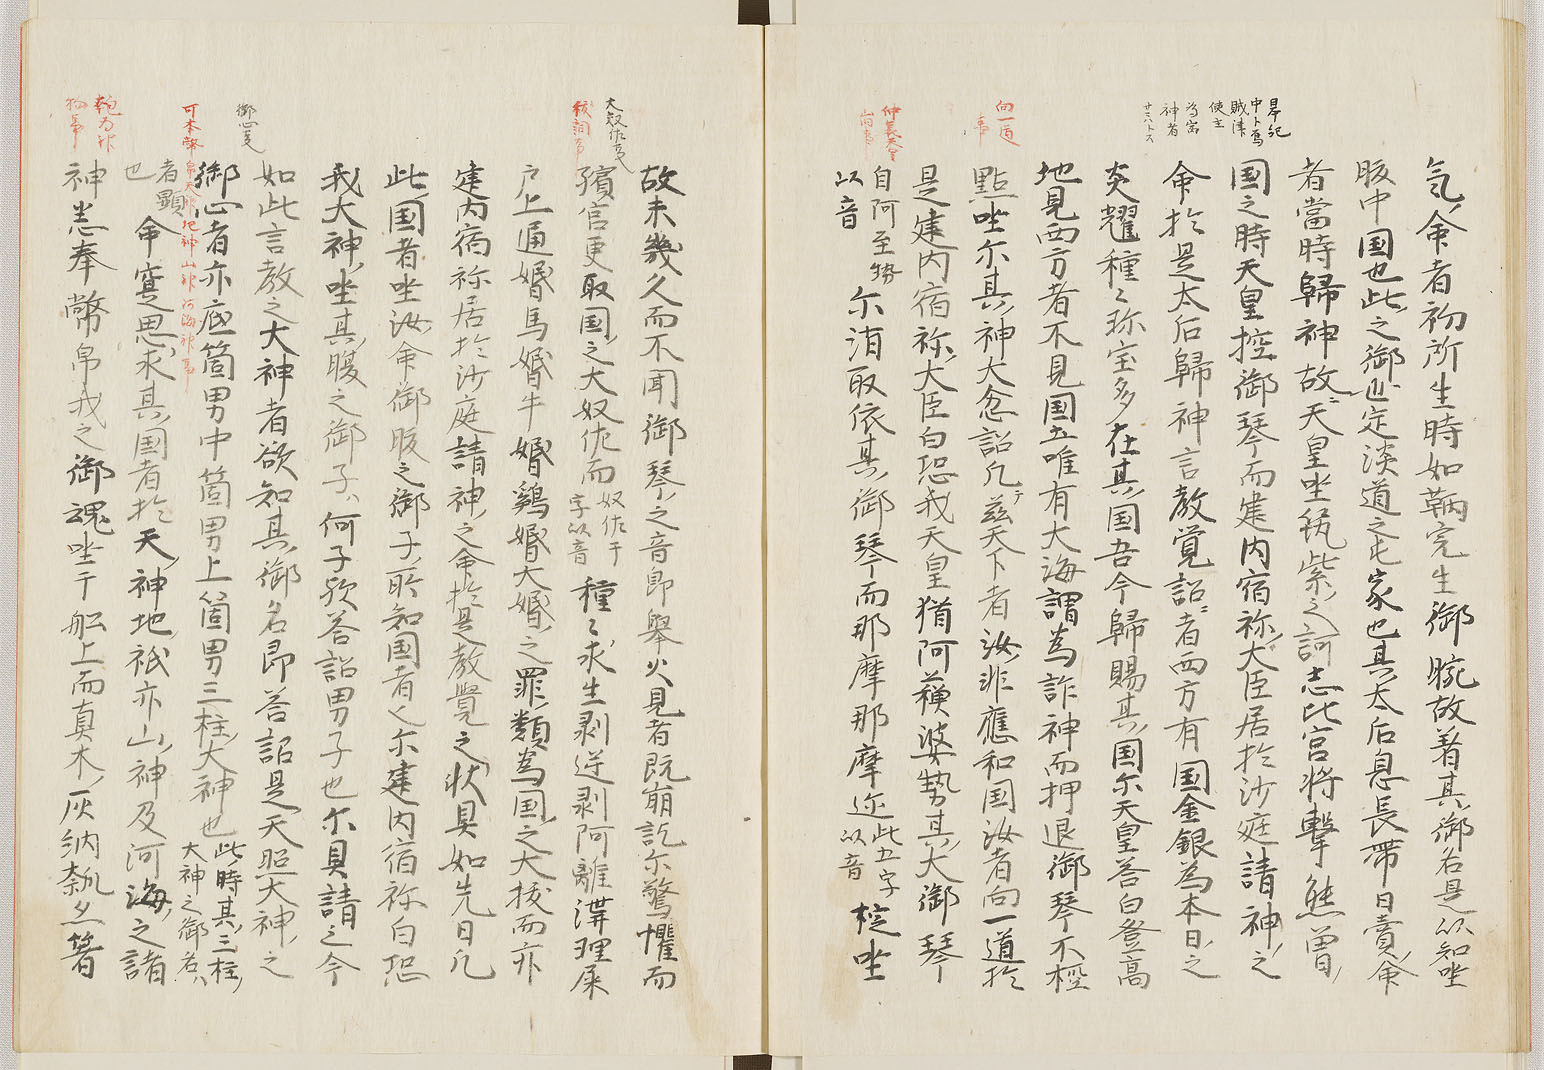 氣命者初所生時如鞆完生御腕故著其御名是以知坐
腹中国也此之御世定淡道之屯家也其太后息長帯日賣命
者當時歸神故天皇坐筑紫之訶志比宮将撃熊曽
国之時天皇控御琴而建内宿祢大臣居於沙庭請神之
命於是太后歸神言教覚詔者西方有国金銀為本日之
炎耀種〻珎宝多在其国吾今歸賜其国尓天皇答白登高
地見西方者不見国土唯有大海謂為詐神而押退御琴不控
點坐尓其神大忿詔凡茲天下者汝非應和国汝者向一道於
是建内宿祢大臣白恐我天皇猶阿蘓婆勢其大御琴
自阿至勢
以音
尓消取依其御琴而那摩那摩迩
此五字
以音
控坐
故未幾久而不聞御琴之音即舉火見者既崩訖尓驚懼而
殯宮更取国之大奴佐而
奴佐二
字以音
種〻求生剥逆剥阿離溝埋屎
戸上通婚馬婚牛婚鷄婚犬婚之罪類為国之大拔而亦
建内宿祢居於沙庭請神之命於是教覺之状具如先日凡
此国者坐汝命御腹之御子所知国者也尓建内宿祢白恐
我大神坐其腹之御子何子歟答詔男子也尓具請之今
如此言教之大神者欲知其御名即答詔是天照大神之
御心者亦底箇男中箇男上箇男三柱大神也
此時其三柱
大神之御名
者顕
也
命寔思求其国者於天神地祇亦山神及河海之諸
神悉奉幣帛我之御魂坐于舩上而真木灰納瓠亦箸